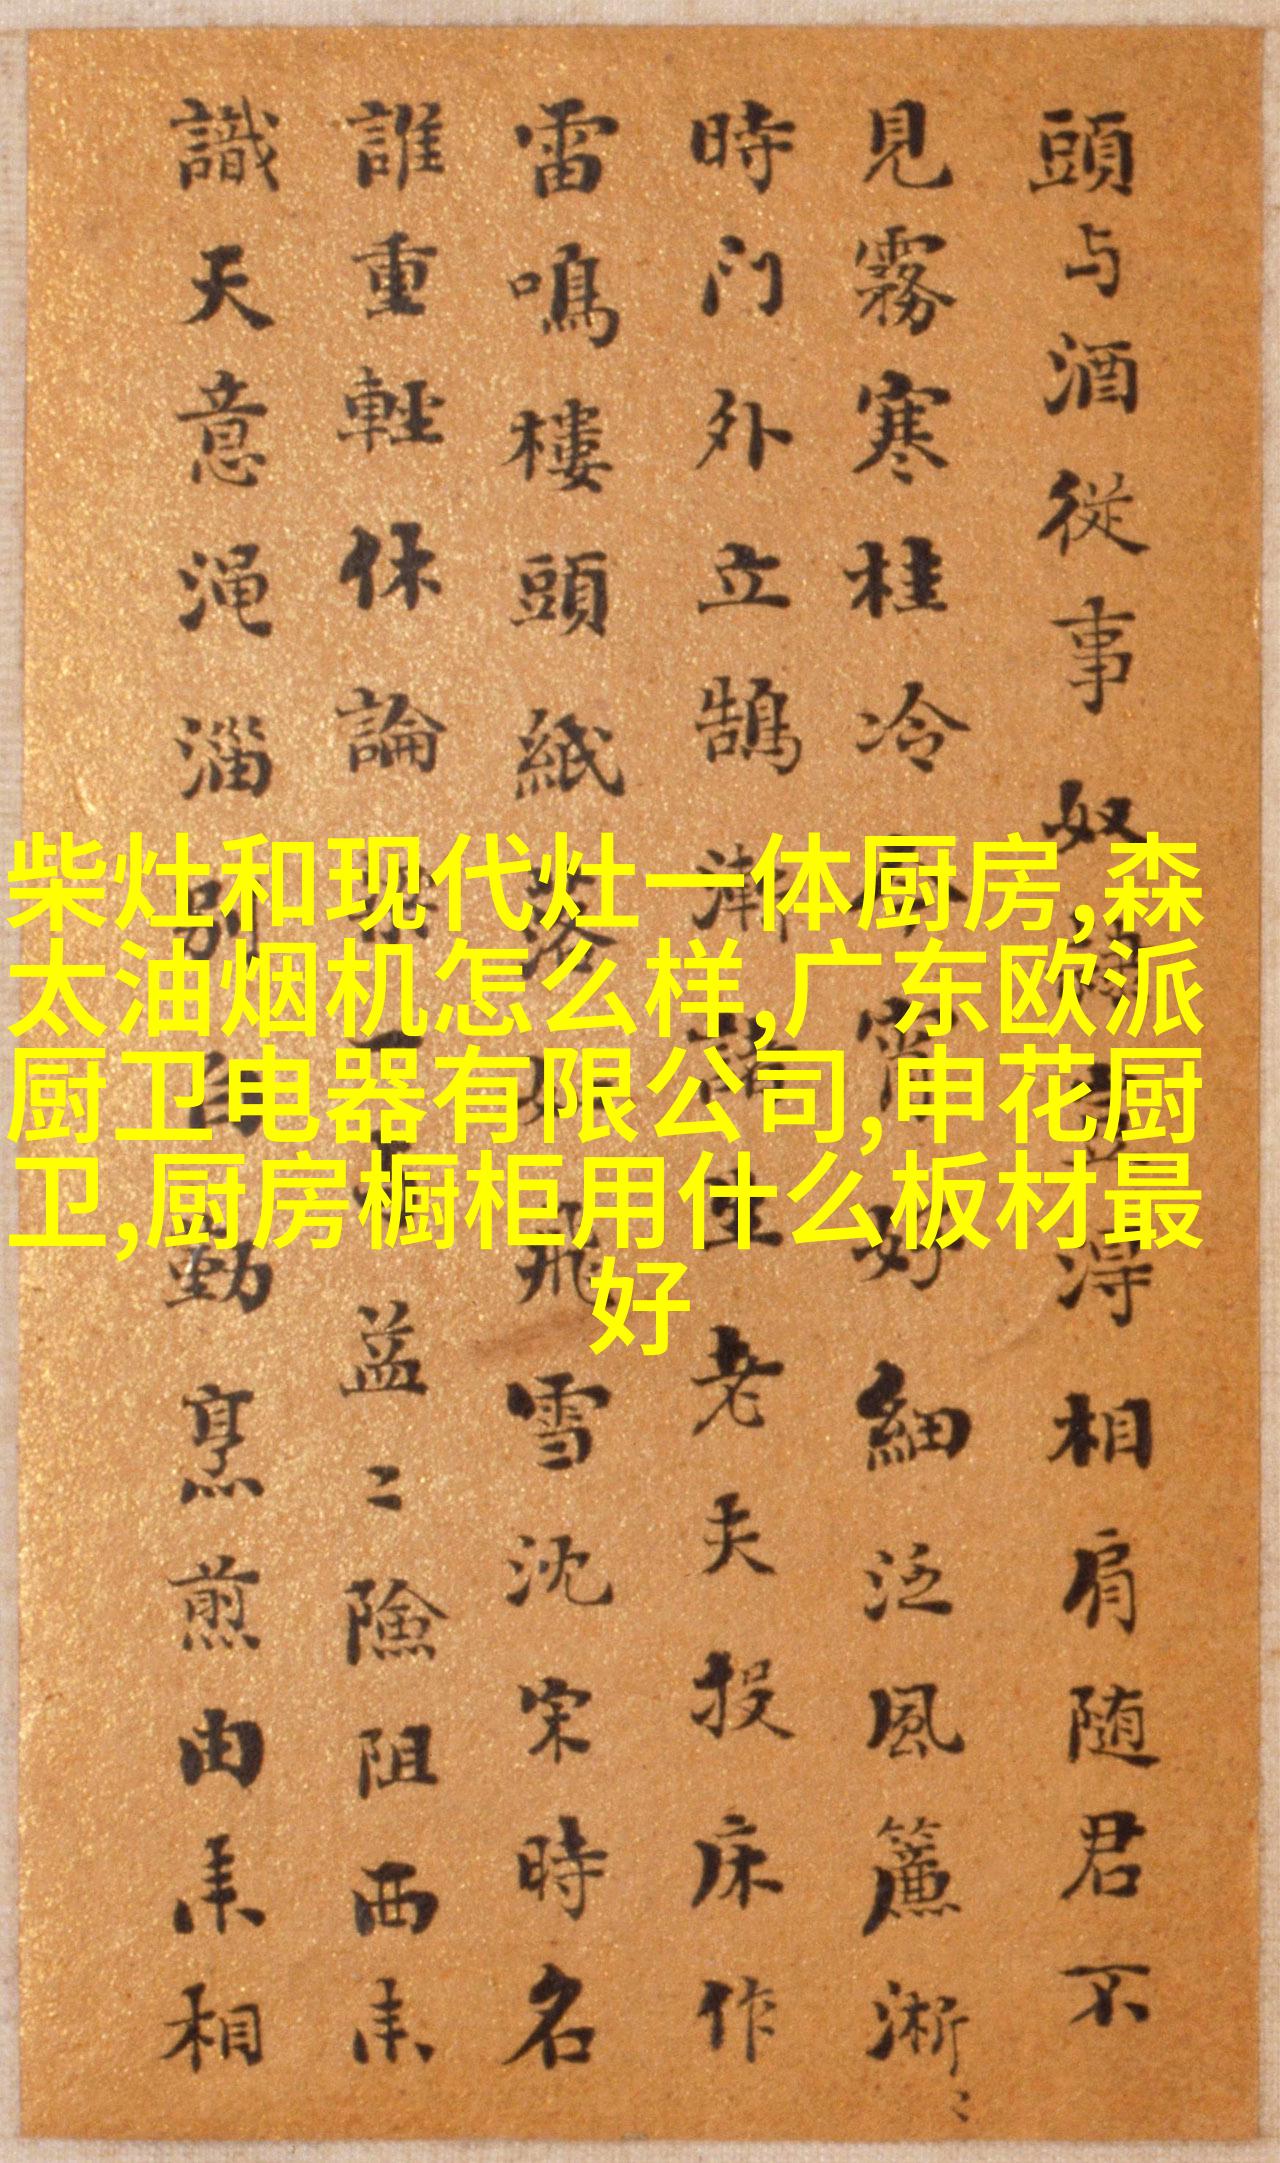 頭与酒従事奴
相肩随君不
見霧寒桂冷
好細泛風簾淅〻
時门外立鵠
老夫投床作
雷鳴樓頭紙落
飛雪沈宋時名
誰重輕休論
益〻險阻西来
識天意渑淄别
勤烹煎由来相
柴灶和现代灶一体厨房,森
太油烟机怎么样,广东欧派
厨卫电器有限公司,申花厨
卫,厨房橱柜用什么板材最
好